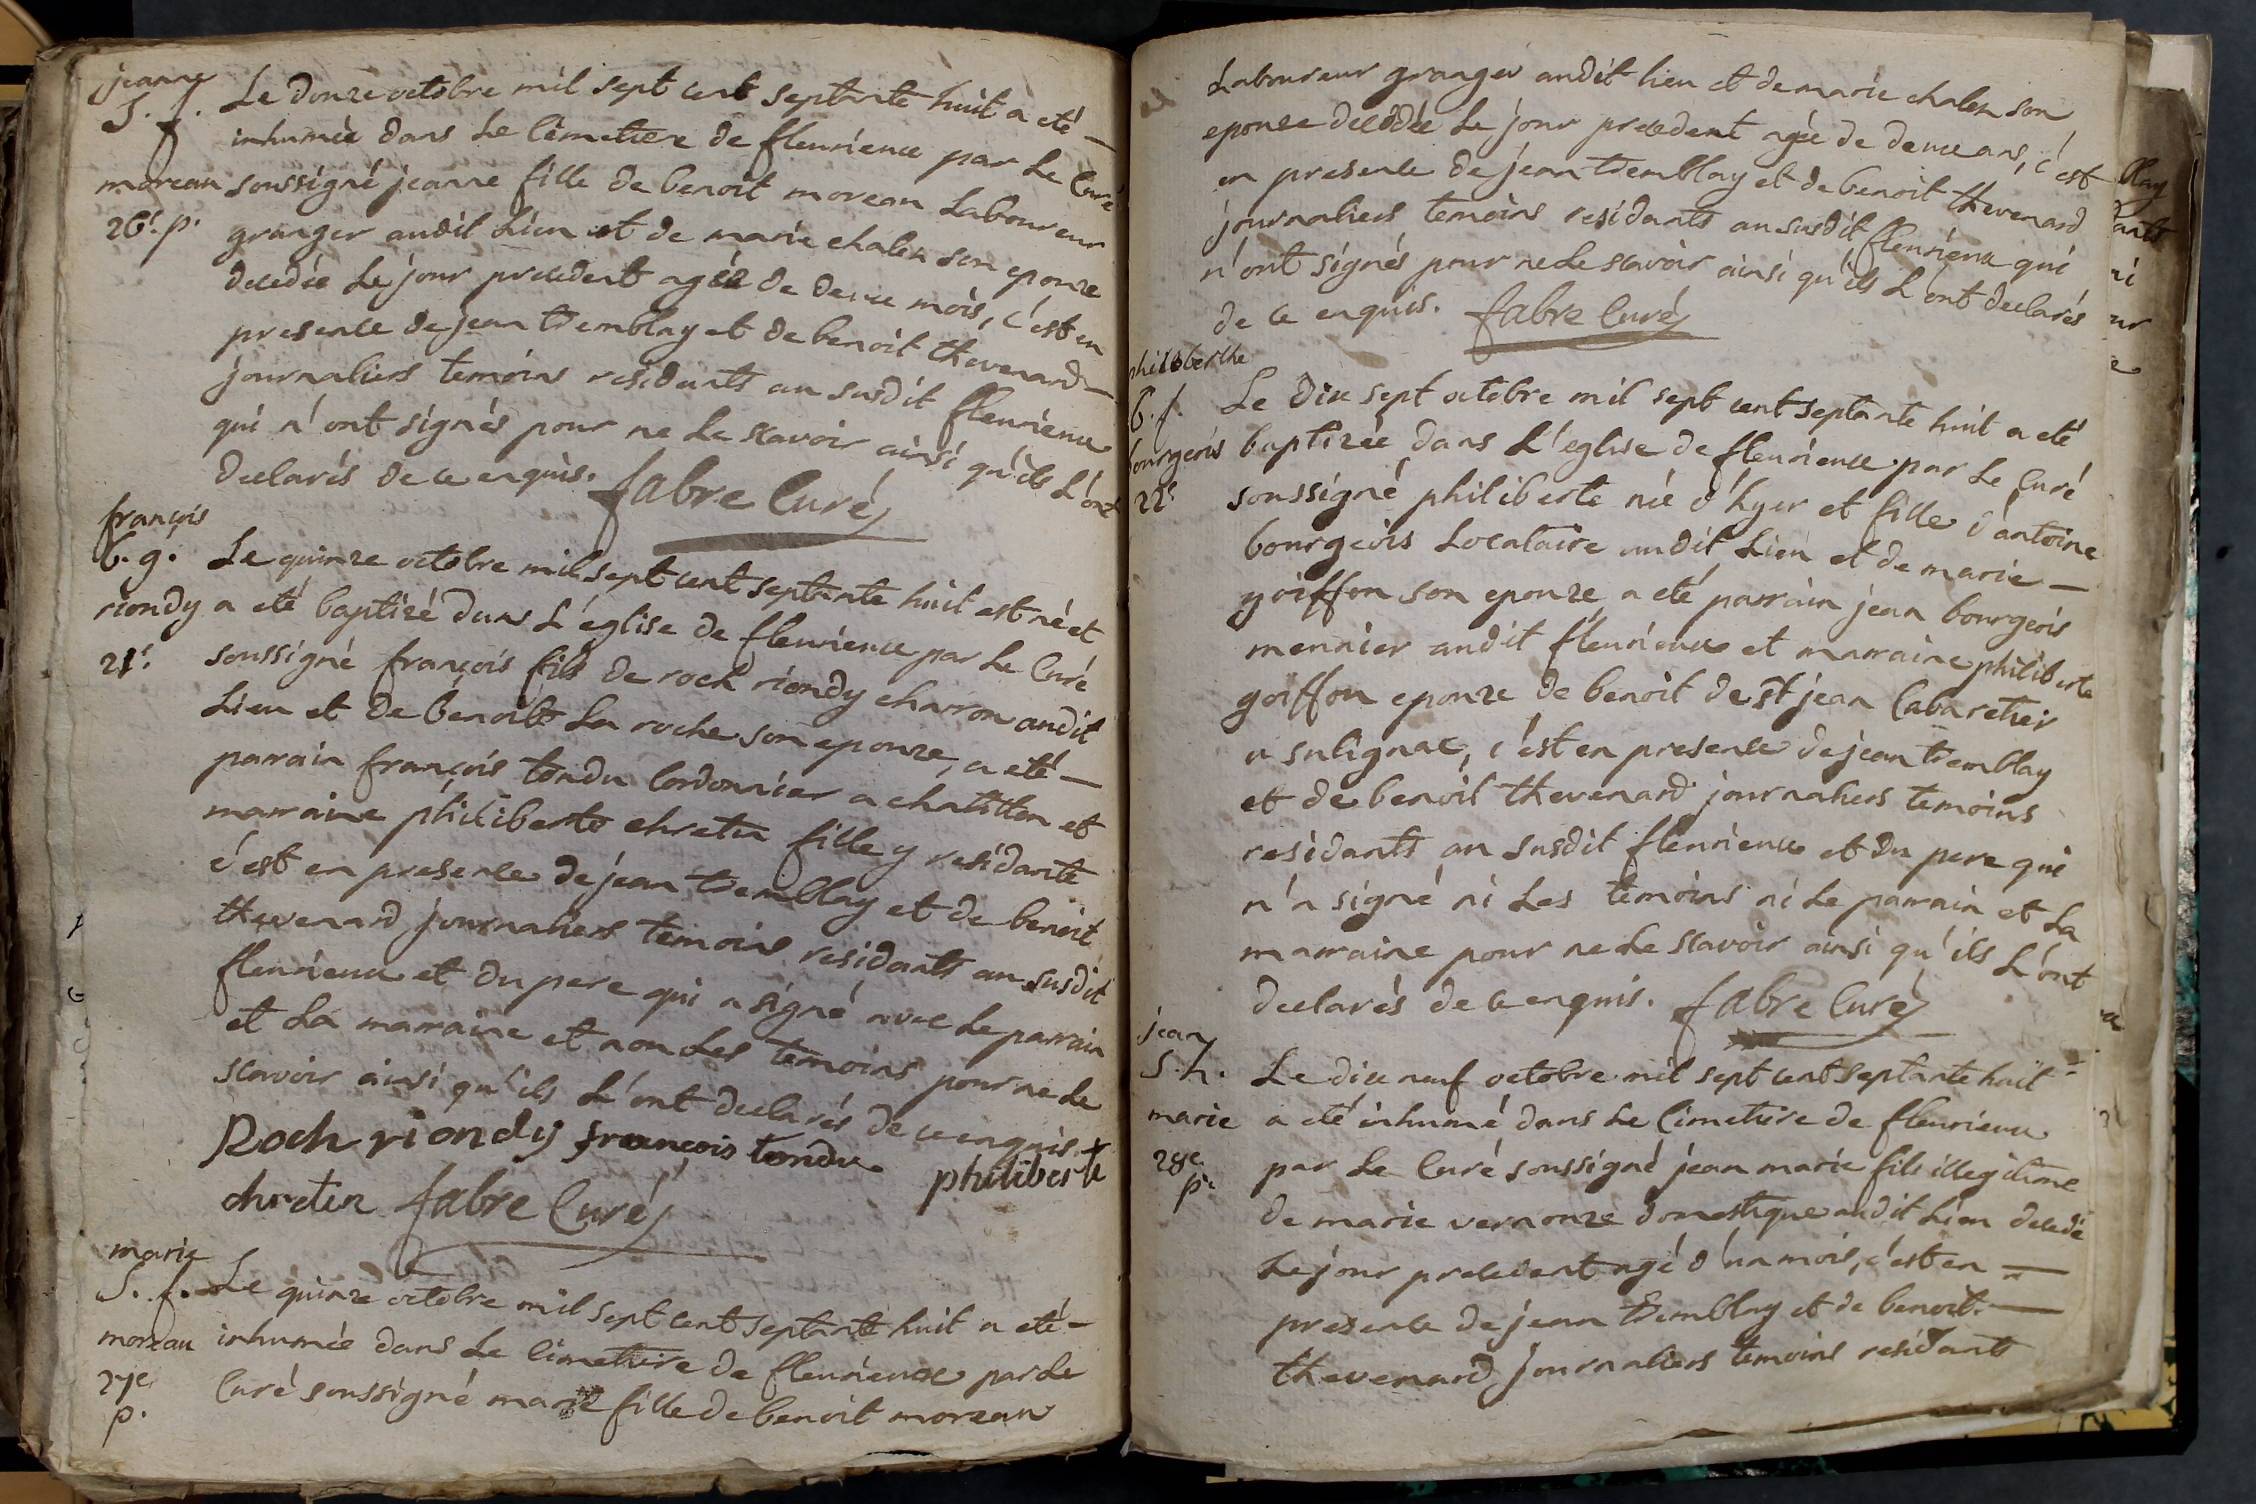 jeanne
S. f.
moreau
26e. p.
Le douze octobre mil sept cent septante huit a eté —
inhumée dans Le Cimetiere de fleurieux par Le Curé
soussigné jeanne fille de benoit moreau Laboureur
granger audit Lieu et de marie chalen son epouze
decedée Le jour precedent agée de deux mois, c'est en
presence de jean tremblay et de benoit thevenard —
journaliers temoins residants au susdit fleurieux
qui n'ont signés pour ne Le scavoir ainsi qu'ils L'ont
declarés de ce enquis. fabre Curé
françois
b. g.
riondy
21e.
Le quinze octobre mil sept cent septante huit est né et
a eté baptizé dans L'église de fleurieux par Le Curé
soussigné françois fils de roch riondy charron audit
Lieu et de benoite La roche son epouze, a eté —
parrain françois tondu Cordonnier a chatillon et
marraine philiberte chretin fille y residante
c'est en presence de jean tremblay et de benoit
thevenard journaliers temoins residants au susdit
fleurieux et du pere qui a signé avec Le parrain
et La marraine et non Les temoins pour ne Le
scavoir ainsi qu'ils L'ont declarés de ce enquis.
Roch riondy françois tondu philiberte
chretin fabre Curé
marie
S. f.
moreau
27e
p.
Le quinze octobre mil sept cent septante huit a eté —
inhumée dans Le Cimetiere de fleurieux par Le
Curé soussigné marie fille de benoit moreau
Laboureur granger audit lieu et de marie chalen son
epouze decedée Le jour precedent agée de deux ans, c'est
en presence de jean tremblay et de benoit thevenard
journaliers temoins residants au susdit fleurieux qui
n'ont signés pour ne Le scavoir ainsi qu'ils L'ont declarés
de ce enquis. fabre Curé
philiberthe
b. f.
bourgeois
22e
Le dix sept octobre mil sept cent septante huit a eté
baptizée dans L'eglise de fleurieux par Le Curé
soussigné philiberte née d'hyer et fille d'antoine
bourgeois Locataire audit Lieu et de marie —
goiffon son epouze, a eté parrain jean bourgeois
meunier audit fleurieux et marraine philiberte
goiffon epouze de benoit de st jean Cabaretier
a sulignac, c'est en presence de jean tremblay
et de benoit thevenard journaliers temoins
residants au susdit fleurieux et du pere qui
n'a signé ni Les temoins ni Le parrain et La
marraine pour ne Le scavoir ainsi qu'ils L'ont
declarés de ce enquis. fabre Curé
jean
S. h.
marie
28e
p.
Le dix neuf octobre mil sept cent septante huit
a eté inhumé dans Le Cimetiere de fleurieux
par Le Curé soussigné jean marie fils illegitime
de marie vernonze domestique audit Lieu decedé
Le jour precedent agé d'un mois, c'est en —
presence de jean tremblay et de benoit —
thevenard journaliers temoins residants